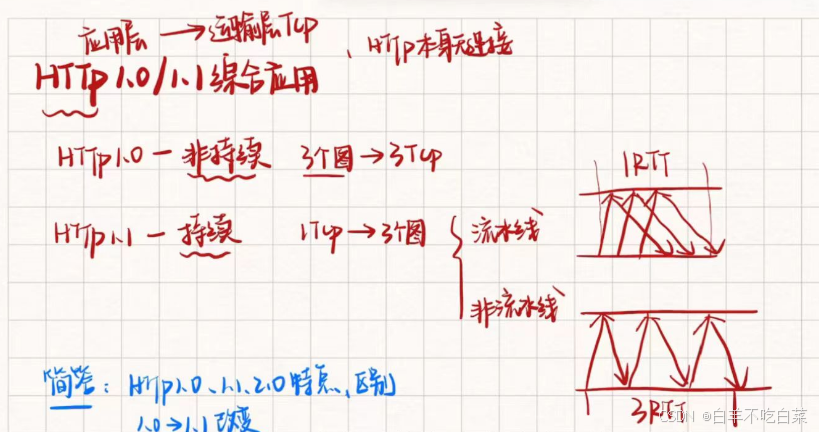 应用层 → 运输层TCP
、HTTP本身无连接
HTTP 1.0/1.1 综合应用
HTTP1.0 — 非持续 3个图 → 3TCP
1RTT
HTTP1.1 — 持续 1TCP → 3个图 { 流水线
非流水线
3RTT
简答：HTTP1.0、1.1、2.0 特点、区别
1.0→1.1 改变
CSDN @白羊不吃白菜